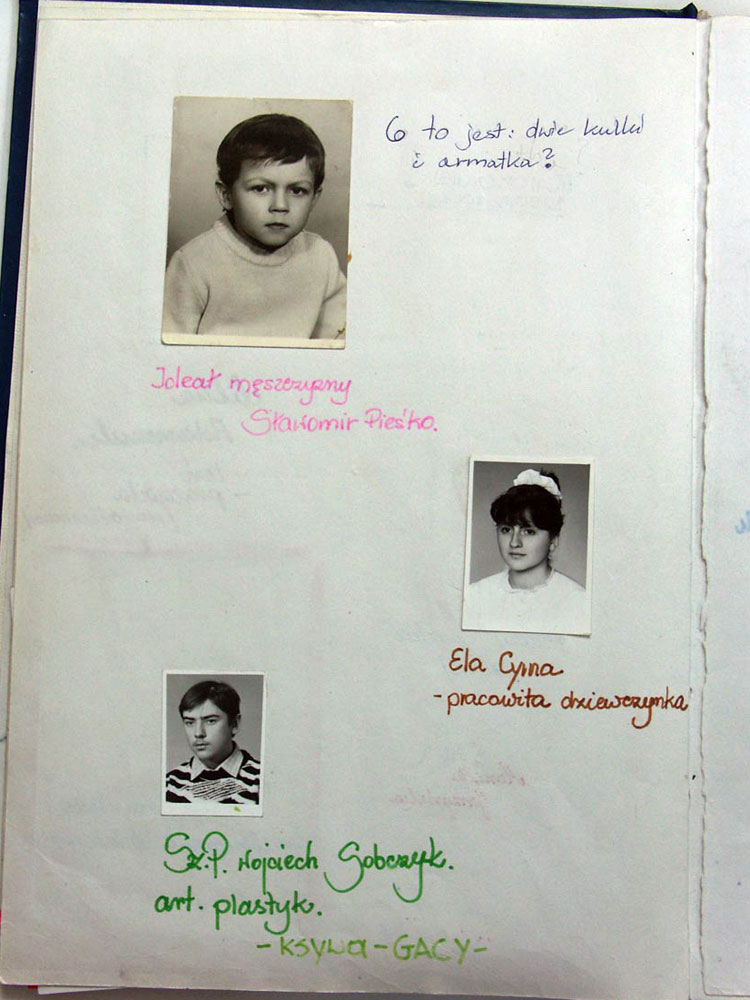 Co to jest: dwie kulki
i armatka?
Ideał męszczyzny
Sławomir Pieśko.
Ela Cyrna
- pracowita dziewczynka
Sz.P. Wojciech Sobczyk.
art. plastyk.
- KSYWA - GACY -